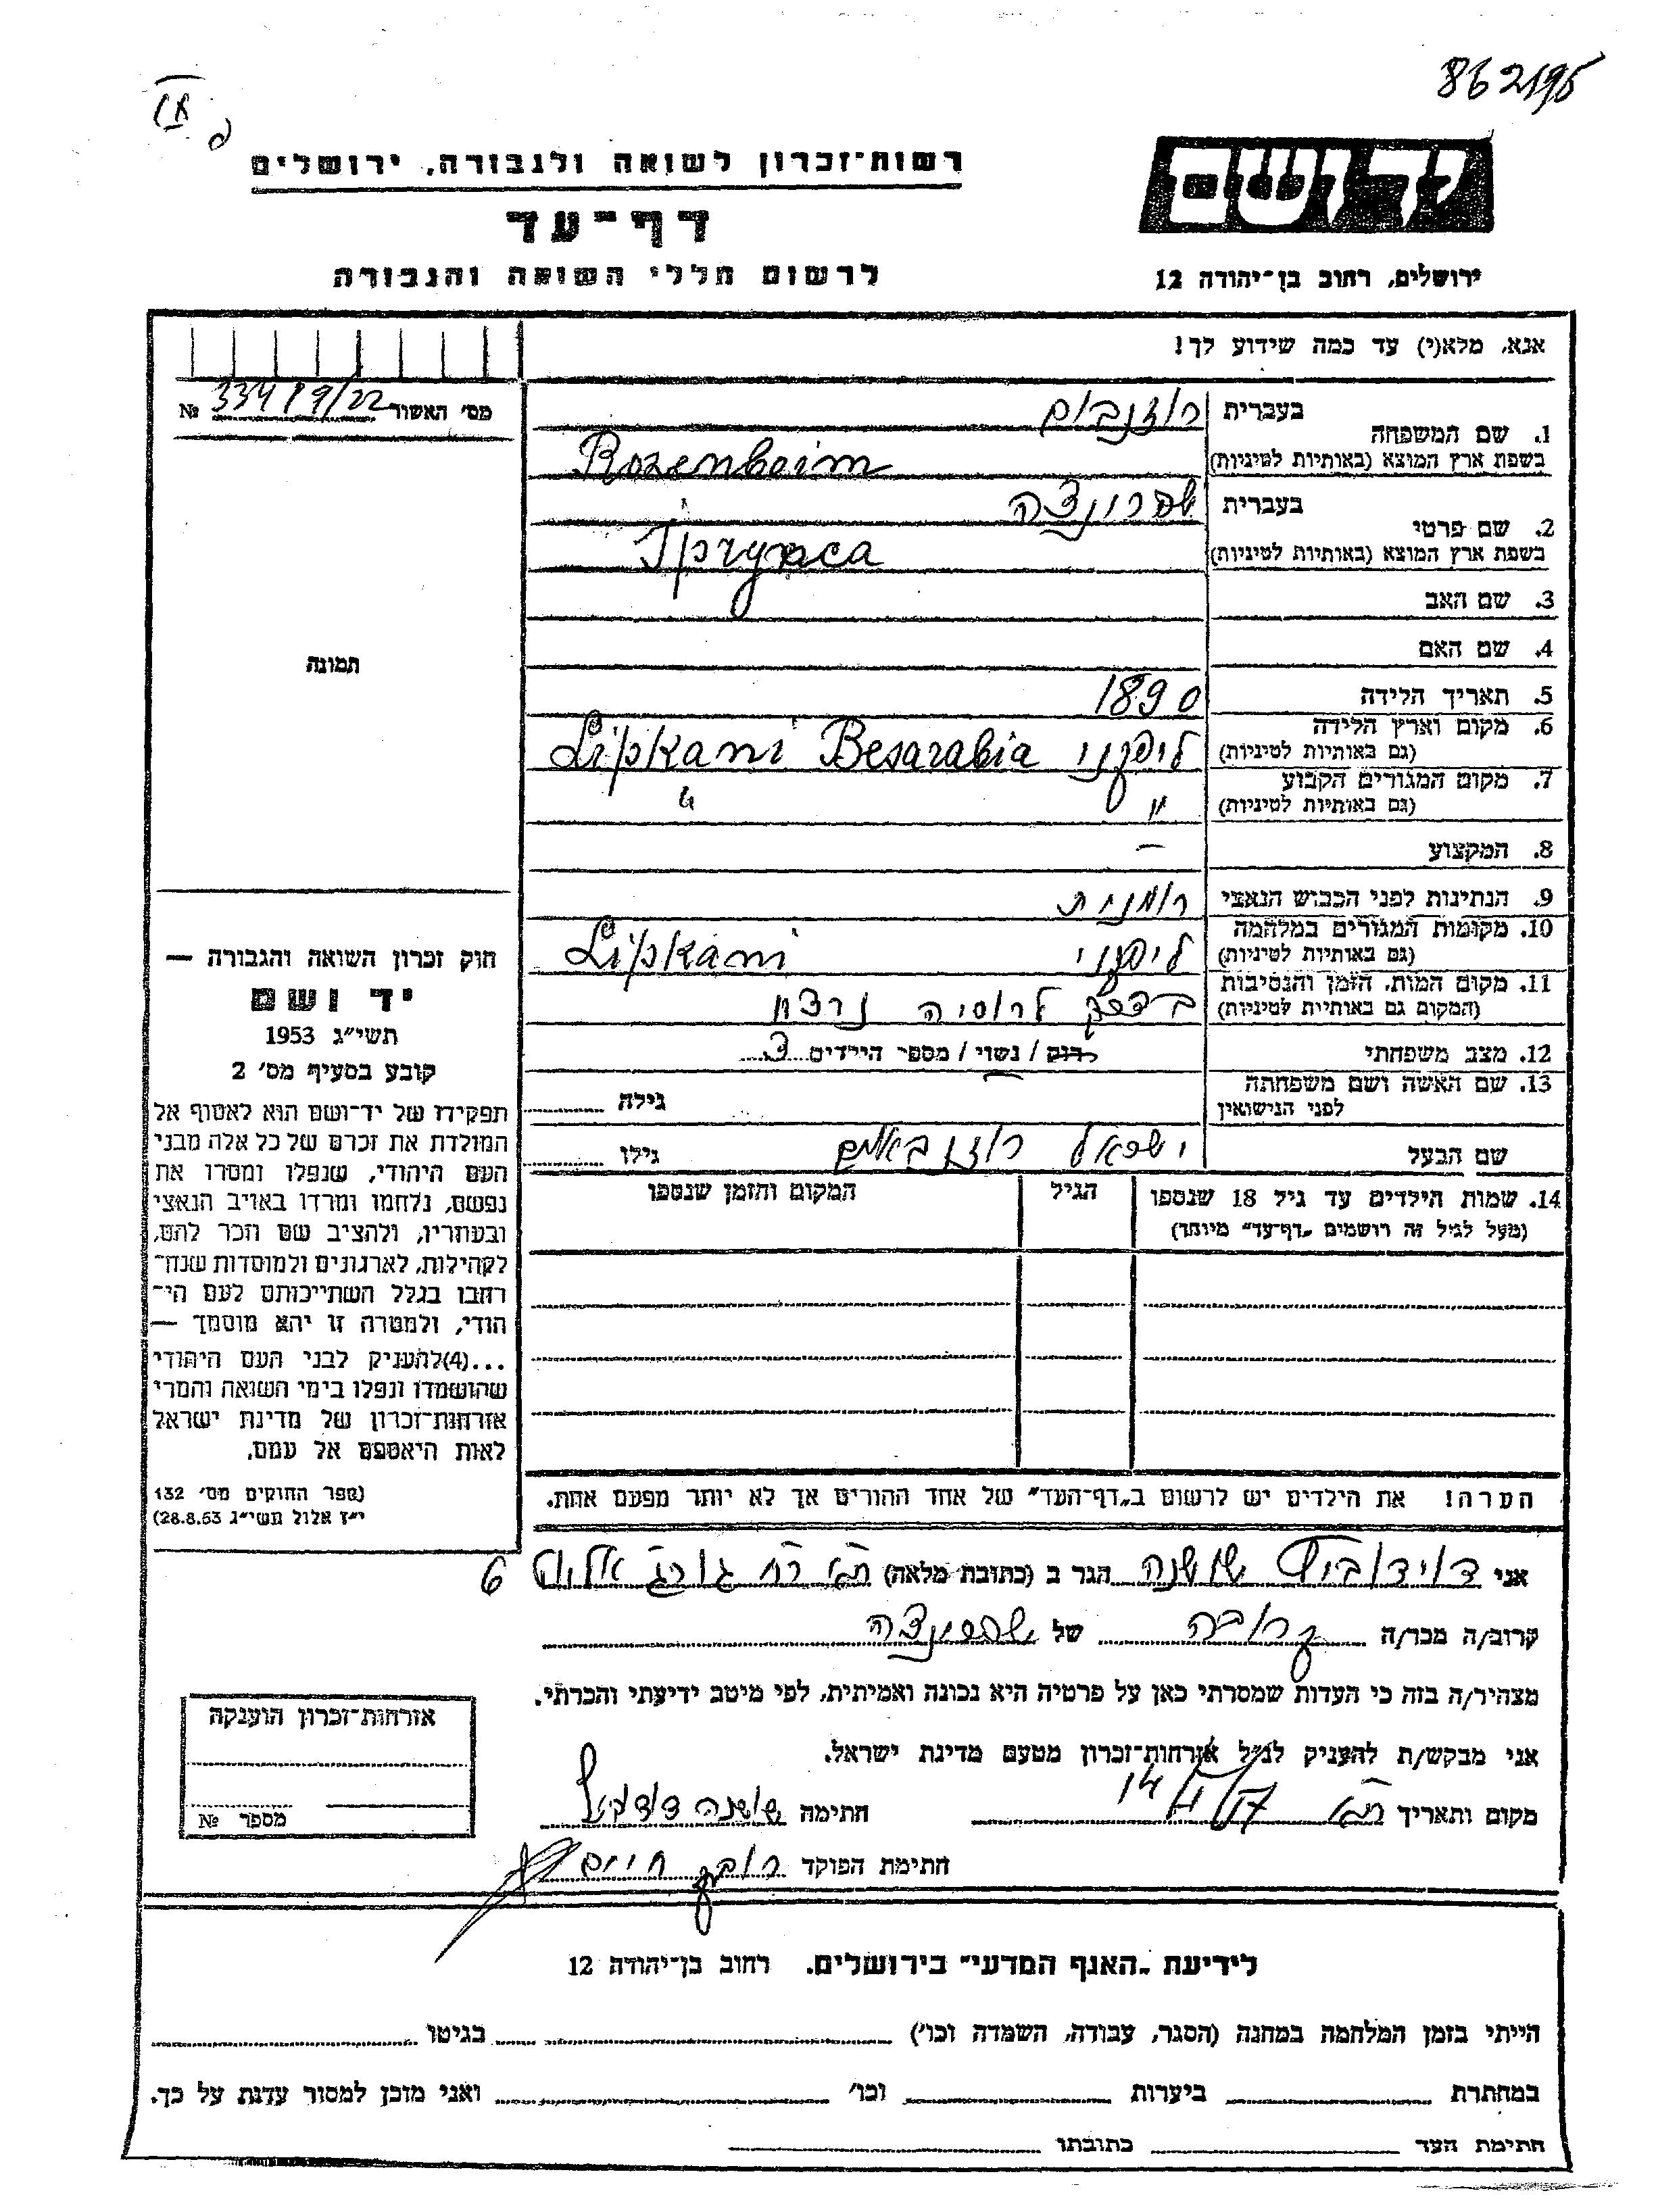 862195
רשות־זכרון לשואה ולגבורה, ירושלים
יד ושם
דף־עד
לרשום חללי השואה והגבורה
ירושלים, רחוב בן־יהודה 12
אנא, מלא(י) עד כמה שידוע לך!
מס׳ האשור 334 19/22 №
1. שם המשפחה
בעברית רוזנבוים
בשפת ארץ המוצא (באותיות לטיניות) Rozenboim
2. שם פרטי
בעברית שפרונצה
בשפת ארץ המוצא (באותיות לטיניות)
3. שם האב
4. שם האם
תמונה
5. תאריך הלידה 1890
6. מקום וארץ הלידה
(גם באותיות לטיניות) ליפקני Lipkani Besarabia
7. מקום המגורים הקבוע
(גם באותיות לטיניות) " "
8. המקצוע —
9. הנתינות לפני הכבוש הנאצי רומנית
10. מקומות המגורים במלחמה
(גם באותיות לטיניות) ליפקני Lipkani
11. מקום המות, הזמן והנסיבות
(המקום גם באותיות לטיניות) בדרך לרוסיה נרצח
12. מצב משפחתי רווק / נשוי / מספר הילדים 3
13. שם האשה ושם משפחתה
לפני הנישואין גילה
שם הבעל ישראל רוזנבאום גילו
14. שמות הילדים עד גיל 18 שנספו
(מעל לגיל זה רושמים „דף־עד" מיוחד)
הגיל
המקום והזמן שנספו
חוק זכרון השואה והגבורה —
יד ושם
תשי״ג 1953
קובע בסעיף מס׳ 2
תפקידו של יד־ושם הוא לאסוף אל
המולדת את זכרם של כל אלה מבני
העם היהודי, שנפלו ומסרו את
נפשם, נלחמו ומרדו באויב הנאצי
ובעוזריו, ולהציב שם וזכר להם,
לקהילות, לארגונים ולמוסדות שנח־
רבו בגלל השתייכותם לעם הי־
הודי, ולמטרה זו יהא מוסמך —
...(4)להעניק לבני העם היהודי
שהושמדו ונפלו בימי השואה והמרי
אזרחות־זכרון של מדינת ישראל
לאות היאספם אל עמם.
(ספר החוקים מס׳ 132
י״ז אלול תשי״ג 28.8.53)
הערה! את הילדים יש לרשום ב„דף־העד" של אחד ההורים אך לא יותר מפעם אחת.
אני דוידוביץ שושנה הגר ב (כתובת מלאה) ת״א רח׳ גורג אליוט 6
קרוב/ה מכר/ה קרובה של שפרונצה
מצהיר/ה בזה כי העדות שמסרתי כאן על פרטיה היא נכונה ואמיתית, לפי מיטב ידיעתי והכרתי.
אני מבקש/ת להעניק לנ״ל אזרחות־זכרון מטעם מדינת ישראל.
מקום ותאריך ת״א 14/ חתימה שושנה דוידוביץ
חתימת הפוקד חיים
אזרחות־זכרון הוענקה
מספר №
לידיעת „האגף המדעי" בירושלים. רחוב בן־יהודה 12
הייתי בזמן המלחמה במחנה (הסגר, עבודה, השמדה וכו׳) בגיטו
במחתרת ביערות וכו׳ ואני מוכן למסור עדות על כך.
חתימת העד כתובתו